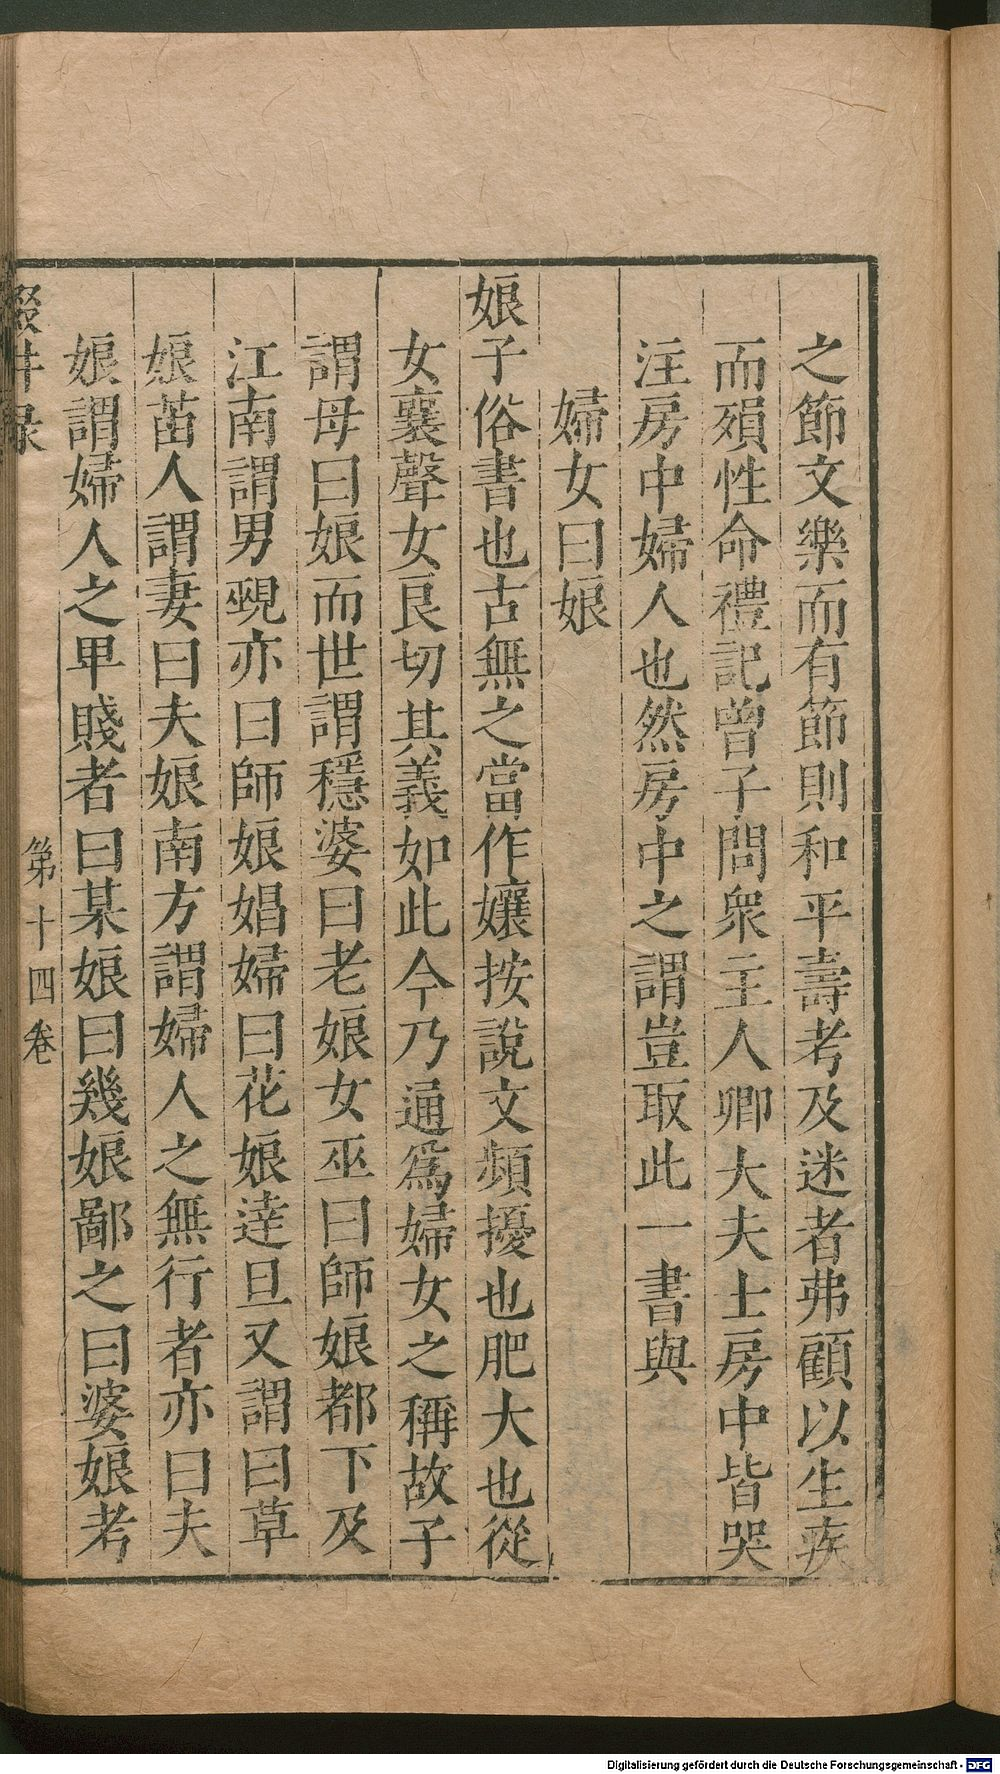 之節文樂而有節則和平壽考及迷者弗顧以生疾
而殞性命禮記曾子問衆主人卿大夫士房中皆哭
注房中婦人也然房中之謂豈取此一書與
婦女曰娘
娘子俗書也古無之當作孃按說文頻擾也肥大也從
女襄聲女良切其義如此今乃通爲婦女之稱故子
謂母曰娘而世謂穩婆曰老娘女巫曰師娘都下及
江南謂男覡亦曰師娘娼婦曰花娘達旦又謂曰草
娘苗人謂妻曰夫娘南方謂婦人之無行者亦曰夫
娘謂婦人之甲賤者曰某娘曰幾娘鄙之曰婆娘考
輟畊录
第十四卷
Digitalisierung gefördert durch die Deutsche Forschungsgemeinschaft - DFG